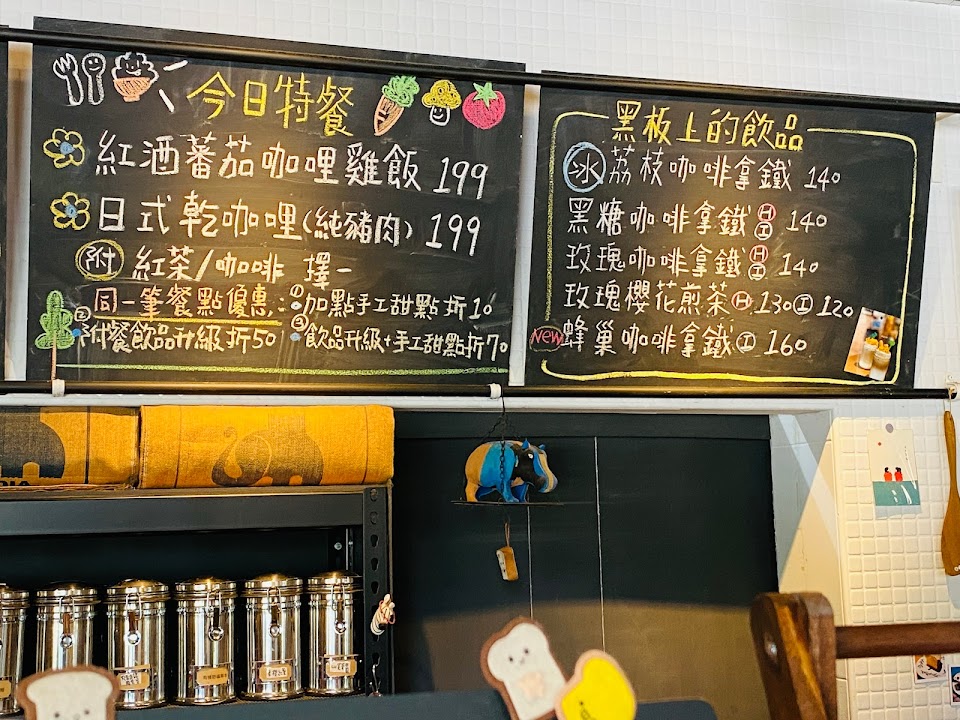 今日特餐
紅酒蕃茄咖哩雞飯 199
日式乾咖哩(純豬肉) 199
附 紅茶/咖啡 擇一
同一筆餐點優惠: ① 加點手工甜點折10
② 附餐飲品升級折50 ③ 飲品升級+手工甜點折70
黑板上的飲品
冰 荔枝咖啡拿鐵 140
黑糖咖啡拿鐵 H I 140
玫瑰咖啡拿鐵 H I 140
玫瑰櫻花煎茶 H 130 I 120
New 蜂巢咖啡拿鐵 I 160